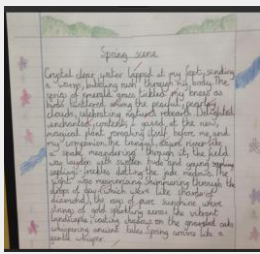 Spring scene
Crystal clear water lapped at my feet, sending
a sharp, bubbling rush through my body. The
spots of emerald grass tickled my knees as
birds twittered among the peaceful, pearly
clouds, celebrating nature's rebirth. Delighted,
enchanted, writerly, I gazed at the new,
magical plant presenting itself before me and
my companion. The tranquil, azure river like
a snake meandering through it; the field
was laden with swollen buds and young
saplings; freckles dotting the jade meadow. The
sight was mesmerising. Shimmering through the
drops of dew (which were like shards of
diamonds), the rays of pure sunshine were
strings of gold sparkling across the vibrant
landscape, casting shadows on the gnarled oaks
whispering ancient tales. Spring arrives like a
gentle whisper.